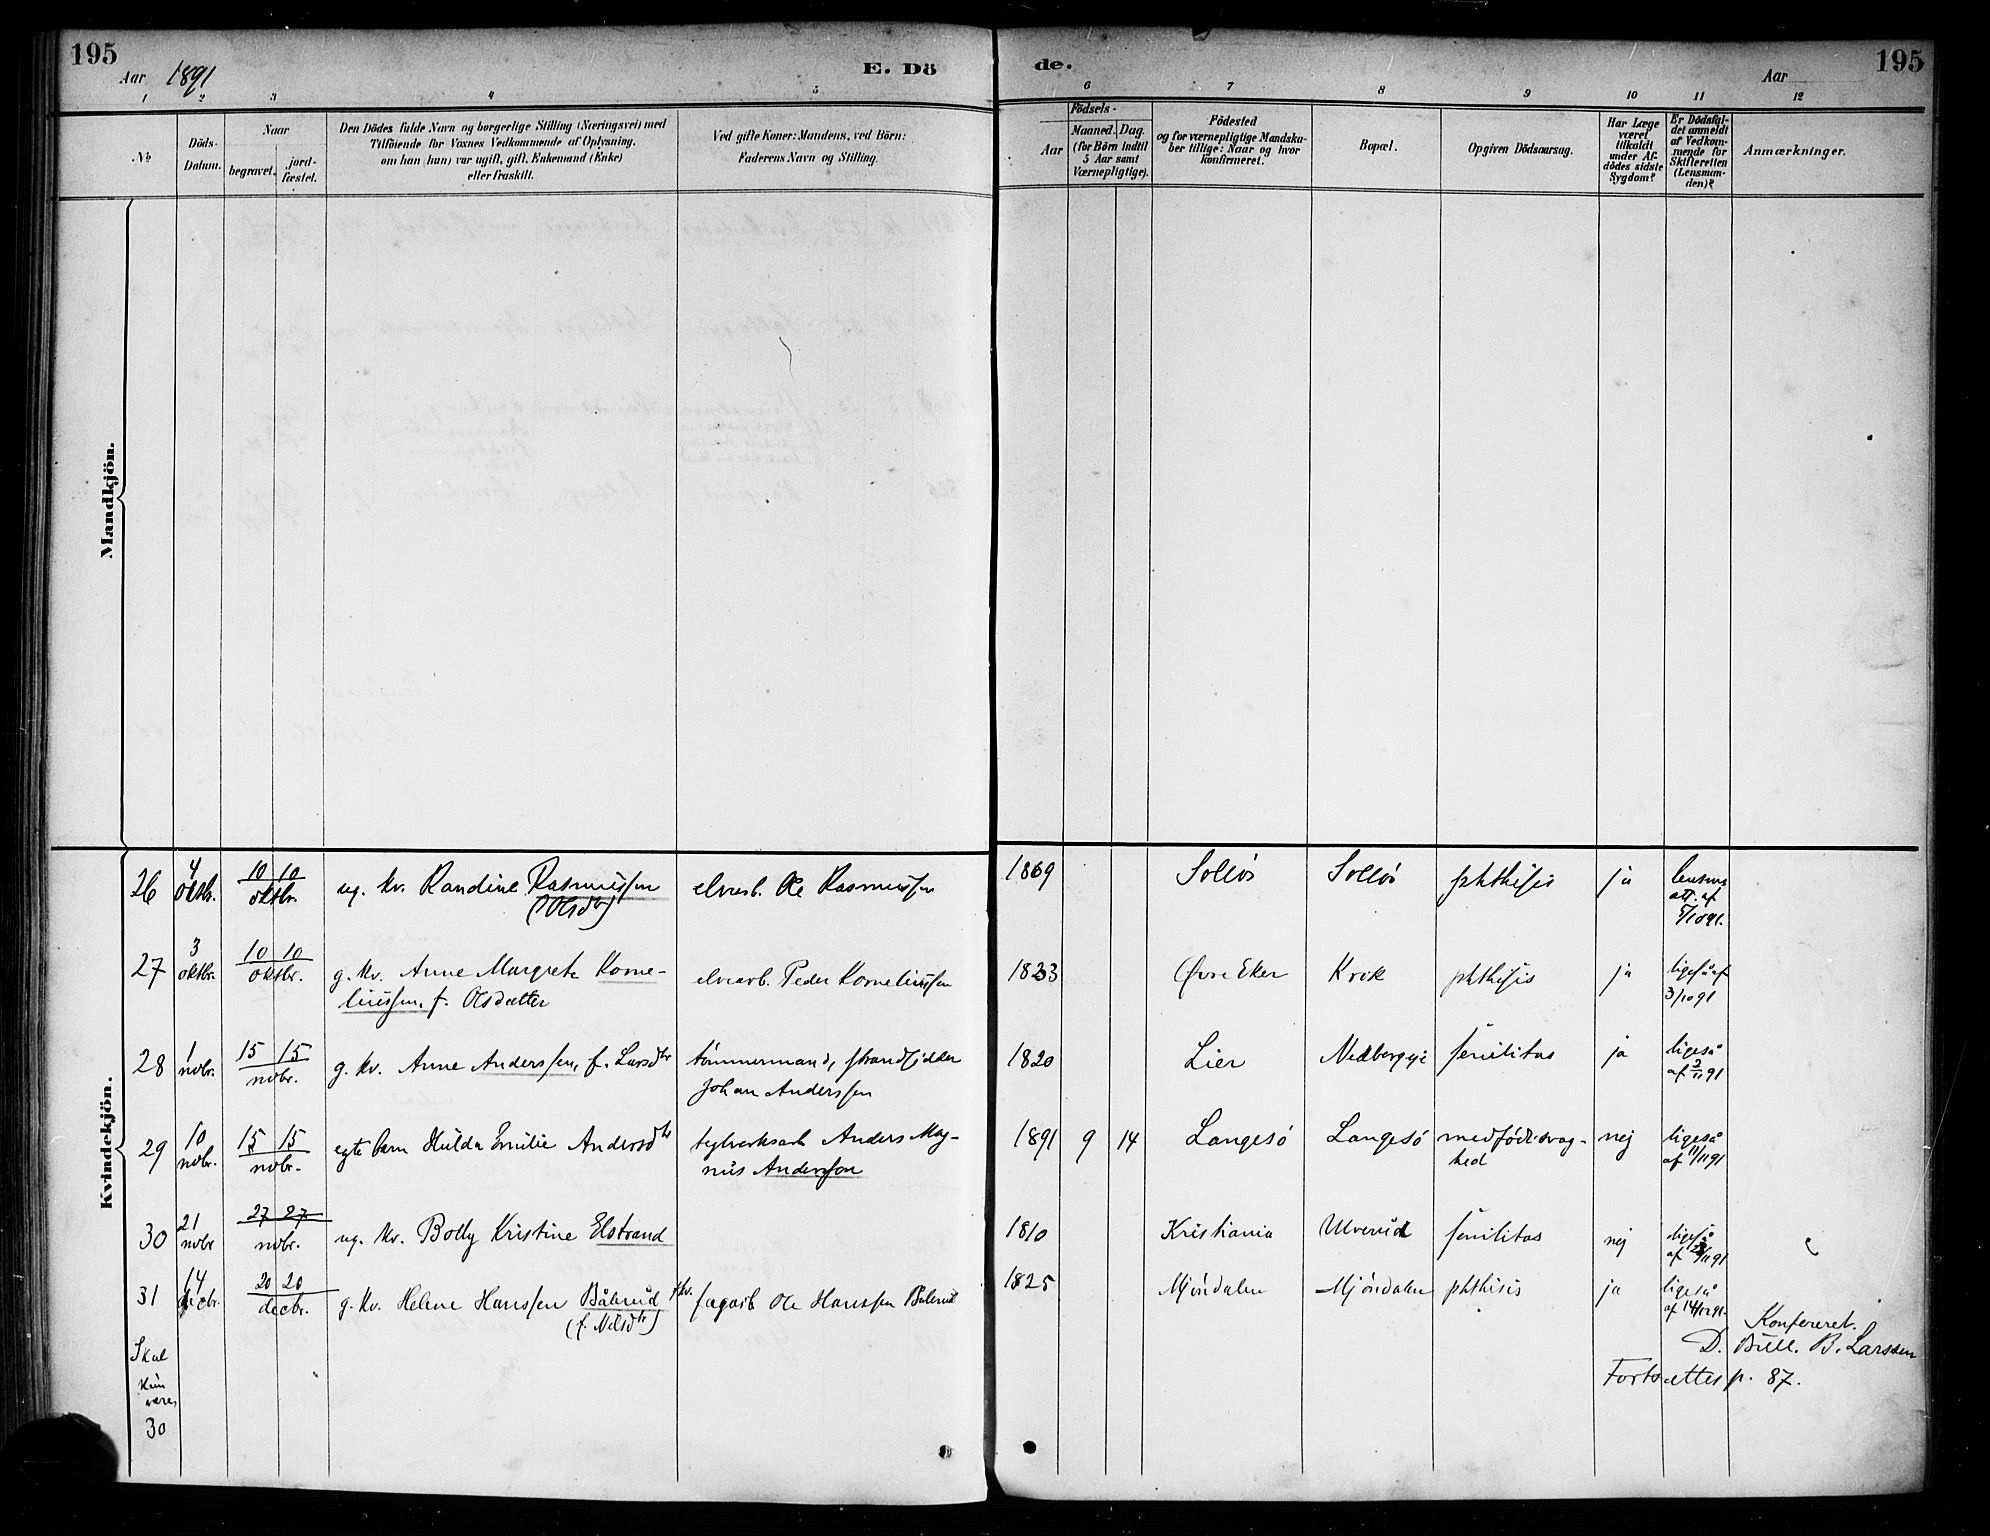 195
Aar 1891
E. Dö
de.
Aar
195
1 2 3 4 5 6 7 8 9 10 11 12
№
Döds-
Datum.
Naar
begravet.
jord-
fæstet.
Den Dödes fulde Navn og borgerlige Stilling (Næringsvei) med
Tilföiende for Voxnes Vedkommende af Oplysning,
om han (hun) var ugift, gift, Enkemand (Enke)
eller fraskilt.
Ved gifte Koner: Mandens, ved Börn:
Faderens Navn og Stilling.
Födsels-
Aar
Maaned. Dag.
(for Börn indtil
5 Aar samt
Værnepligtige).
Födested
og for værnepligtige Mandska-
ber tillige: Naar og hvor
konfirmeret.
Bopæl.
Opgiven Dödsaarsag.
Har Læge
været
tilkaldt
under Af-
dödes sidste
Sygdom?
Er Dödsfal-
det anmeldt
af Vedkom-
mende for
Skifteretten
(Lensman-
den)?
Anmærkninger.
Mandkjön.
Kvindekjön.
26 4 oktbr. 10 10 oktbr. ug. kv. Randine Rasmussen
(Olsdtr)
elvearb. Ole Rasmussen 1869 Solløs Solløs phthisis ja lensm.
att. af
5/10 91.
27 3 oktbr. 10 10 oktbr. g. kv. Anne Margrete Korne-
liussen, f. Olsdatter
elvearb. Peder Korneliussen 1833 Øvre Eker Krok phthisis ja ligeså af
3/10 91
28 1 nvbr. 15 15 nvbr. g. kv. Anne Anderssen, f. Larsdtr
tömmermand, strandsidder
Johan Anderssen
1820 Lier Nedbergeje senilitas ja ligeså
af 3/11 91
29 10 nvbr. 15 15 nvbr. egte barn Hulda Emilie Andersdtr
teglverksarb Anders Mag-
nus Andersson
1891 9 14 Langesö Langesö medfödt svag-
hed
nej ligeså
af 11/11 91
30 21 nvbr 27 27 nvbr. ug. kv. Bolly Kristine Elstrand
1810 Kristiania Ulverud senilitas nej ligeså
af 23/11 91
31 14 decbr. 20 20 decbr. g. kv. Helene Hanssen Bålerud
(f. Nilsdtr)
fagarb Ole Hanssen Bålerud 1825 Mjöndalen Mjöndalen phthisis ja ligeså
af 14/12 91.
Skal
kun
være
30
Konfereret.
D. Bull. B. Larssen
Fortsættes p. 87.